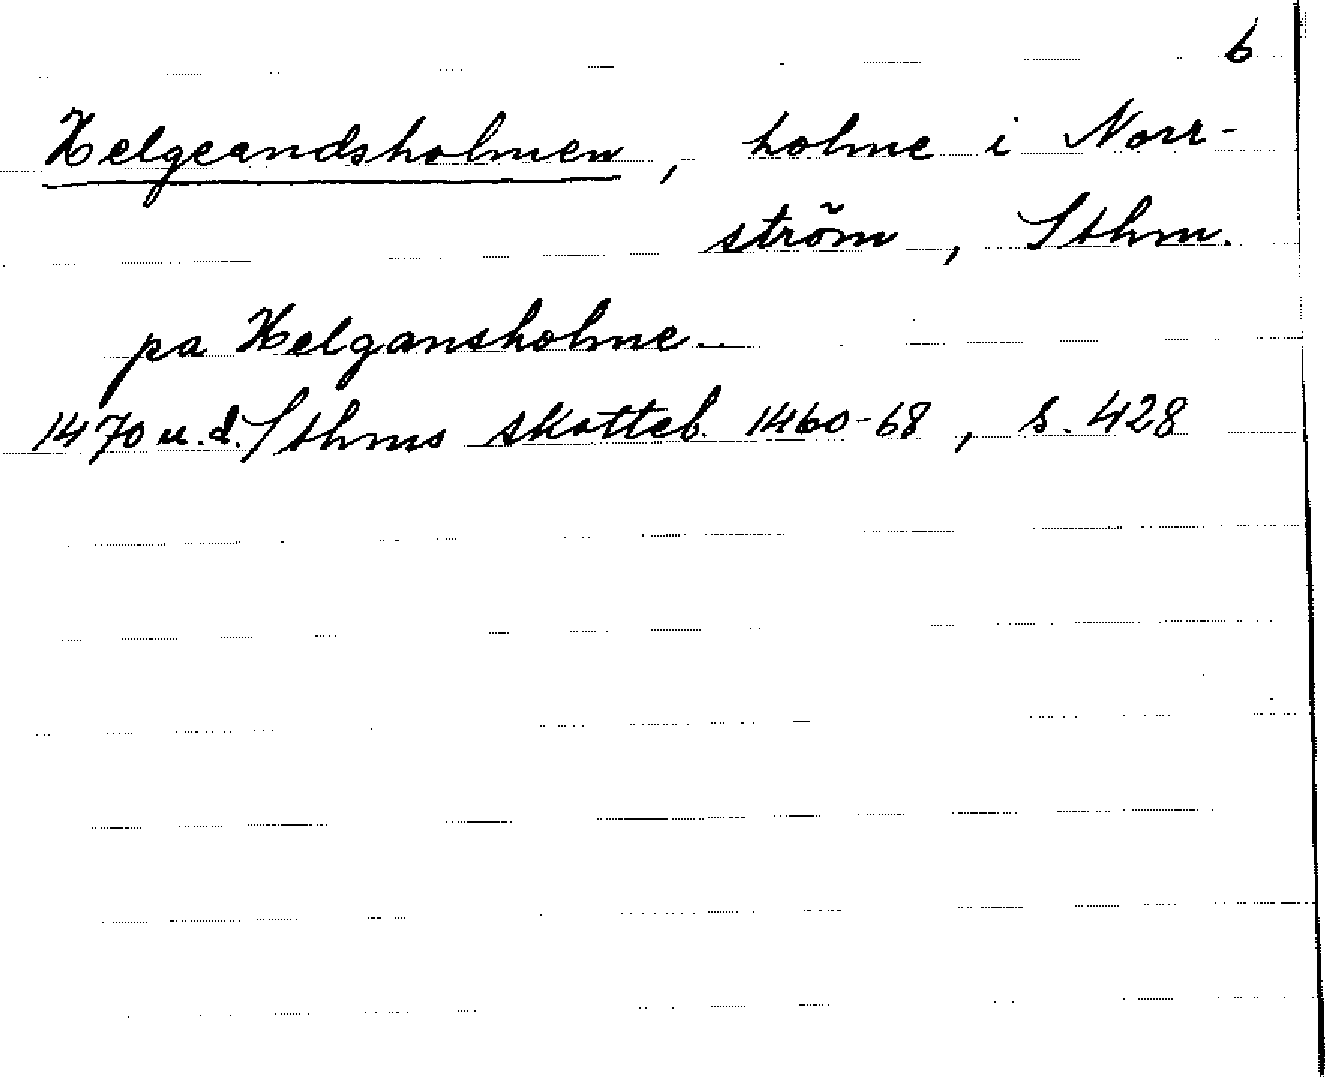 6
Helgeandsholmen, holme i Norr-
ström, Sthm.
pa Helgansholme
1470 u.d. Sthms skotteb. 1460-68, s. 428